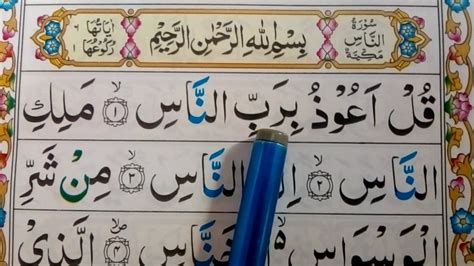 سُوْرَةُ النَّاسِ مَكِّيَّةٌ
بِسْمِ اللهِ الرَّحْمٰنِ الرَّحِيْمِ
اٰيَاتُهَا ٦ رُكُوْعُهَا ١
قُلْ اَعُوْذُ بِرَبِّ النَّاسِ ۙ﴿۱﴾ مَلِكِ
النَّاسِ ۙ﴿۲﴾ النَّاسِ ۙ﴿۳﴾ مِنْ شَرِّ
الْوَسْوَاسِ ﴿۴﴾ الَّذِيْ